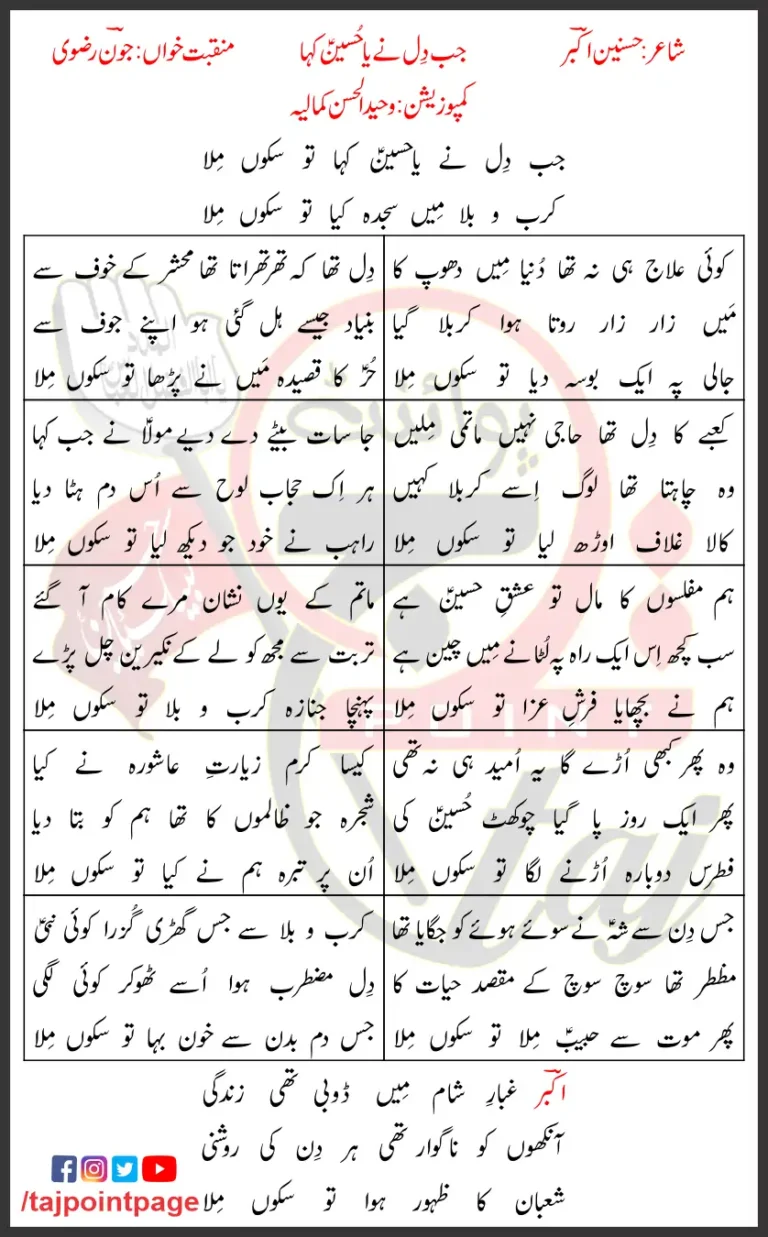 شاعر: حسنین اکبرؔ
جب دِل نے یا حُسینؑ کہا
منقبت خواں: جونؔ رضوی
کمپوزیشن: وحید الحسن کمالیہ
جب دِل نے یا حسینؑ کہا تو سکوں مِلا
کرب و بلا مِیں سجدہ کیا تو سکوں مِلا
کوئی علاج ہی نہ تھا دُنیا مِیں دھوپ کا
مَیں زار زار روتا ہوا کربلا گیا
جالی پہ ایک بوسہ دیا تو سکوں مِلا
دِل تھا کہ تھرتھراتا تھا محشر کے خوف سے
بنیاد جیسے ہل گئی ہو اپنے جوف سے
حُرؑ کا قصیدہ مَیں نے پڑھا تو سکوں مِلا
کعبے کا دِل تھا حاجی نہیں ماتمی مِلیں
وہ چاہتا تھا لوگ اِسے کربلا کہیں
کالا غلاف اوڑھ لیا تو سکوں مِلا
جا سات بیٹے دے دیے مولاؑ نے جب کہا
ہر اِک حجاب لوح سے اُس دم ہٹا دیا
راہب نے خود جو دیکھ لیا تو سکوں مِلا
ہم مفلسوں کا مال تو عشقِ حسینؑ ہے
سب کچھ اِس ایک راہ پہ لُٹانے مِیں چین ہے
ہم نے بچھایا فرشِ عزا تو سکوں مِلا
ماتم کے یوں نشان مرے کام آ گئے
تربت سے مجھ کو لے کے نکیرین چل پڑے
پہنچا جنازہ کرب و بلا تو سکوں مِلا
وہ پھر کبھی اُڑے گا یہ اُمید ہی نہ تھی
پھر ایک روز پا گیا چوکھٹ حُسینؑ کی
فطرس دوبارہ اُڑنے لگا تو سکوں مِلا
کیسا کرم زیارتِ عاشورہ نے کیا
شجرہ جو ظالموں کا تھا ہم کو بتا دیا
اُن پر تبرہ ہم نے کیا تو سکوں مِلا
جس دِن سے شہؑ نے سوئے ہوئے کو جگایا تھا
مظطر تھا سوچ سوچ کے مقصد حیات کا
پھر موت سے حبیبؑ مِلا تو سکوں مِلا
کرب و بلا سے جس گھڑی گُزرا کوئی نبیؑ
دِل مضطرب ہوا اُسے ٹھوکر کوئی لگی
جس دم بدن سے خون بہا تو سکوں مِلا
اکبرؔ غبارِ شام مِیں ڈوبی تھی زندگی
آنکھوں کو ناگوار تھی ہر دِن کی روشنی
شعبان کا ظہور ہوا تو سکوں مِلا
/tajpointpage
پوائنٹ
POINT
taj